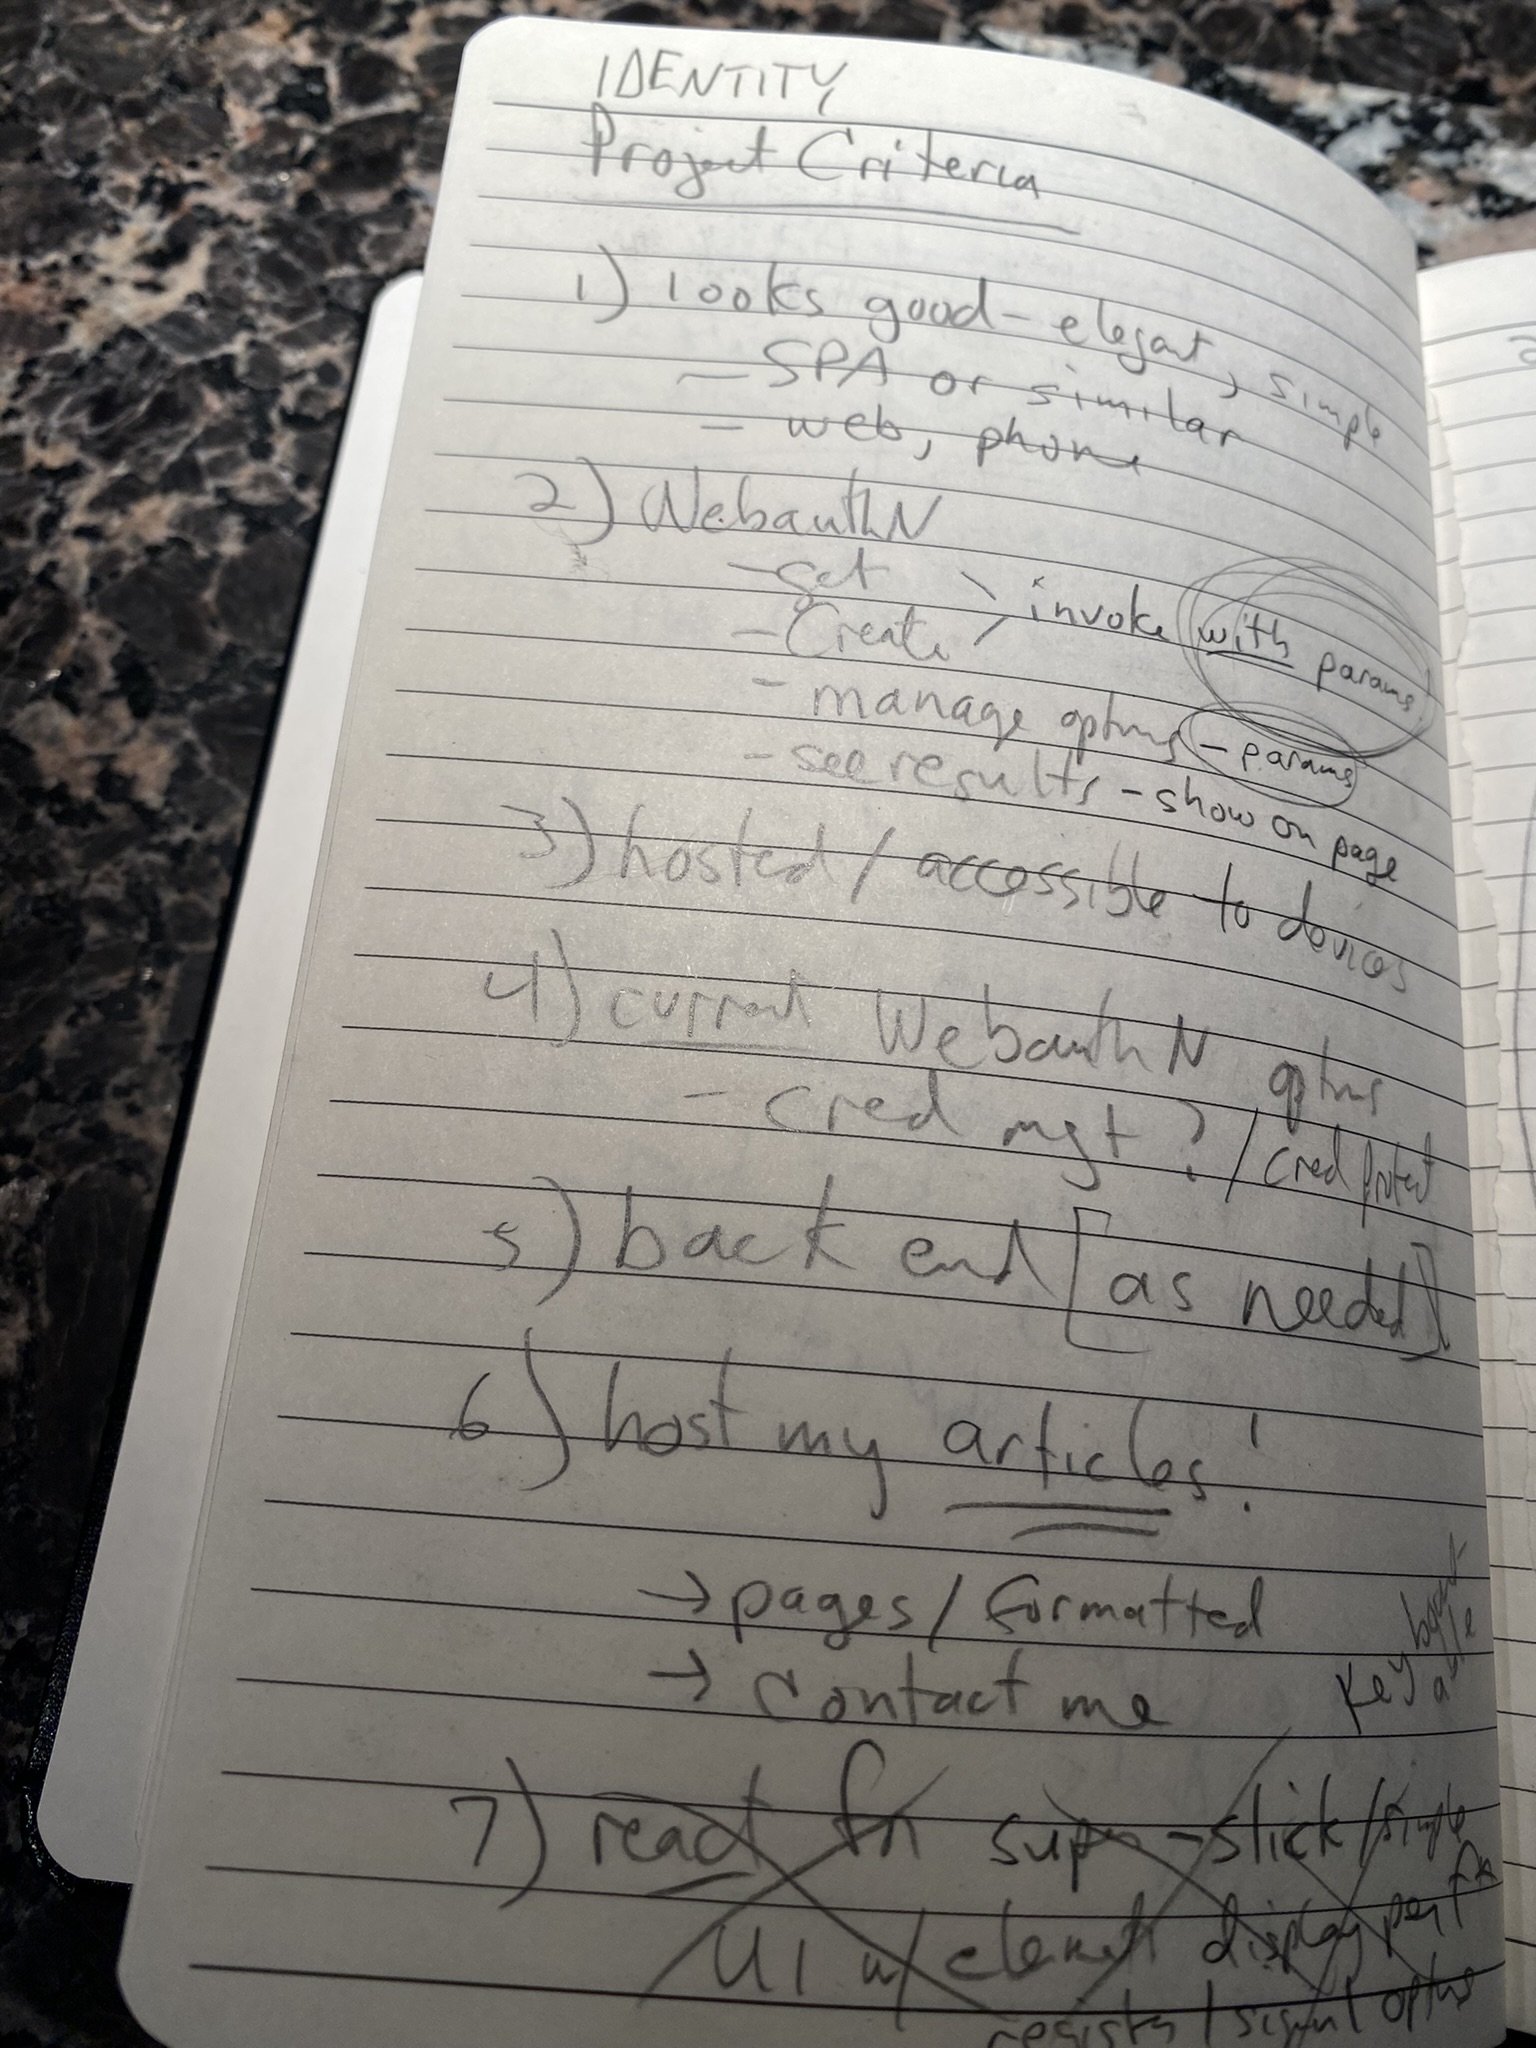 IDENTITY
Project Criteria
1) looks good - elegant, simple
- SPA or similar
- web, phone
2) WebauthN
- get > invoke with params
- Create
- manage optns - params
- see results - show on page
3) hosted / accessible to devices
4) current WebauthN optns
- cred mgt? / cred Protect
5) back end [as needed]
6) host my articles!
→ pages / formatted
→ contact me
key
7) react fn super-slick / simple
UI w/ elements display per fn
register / signin / optns